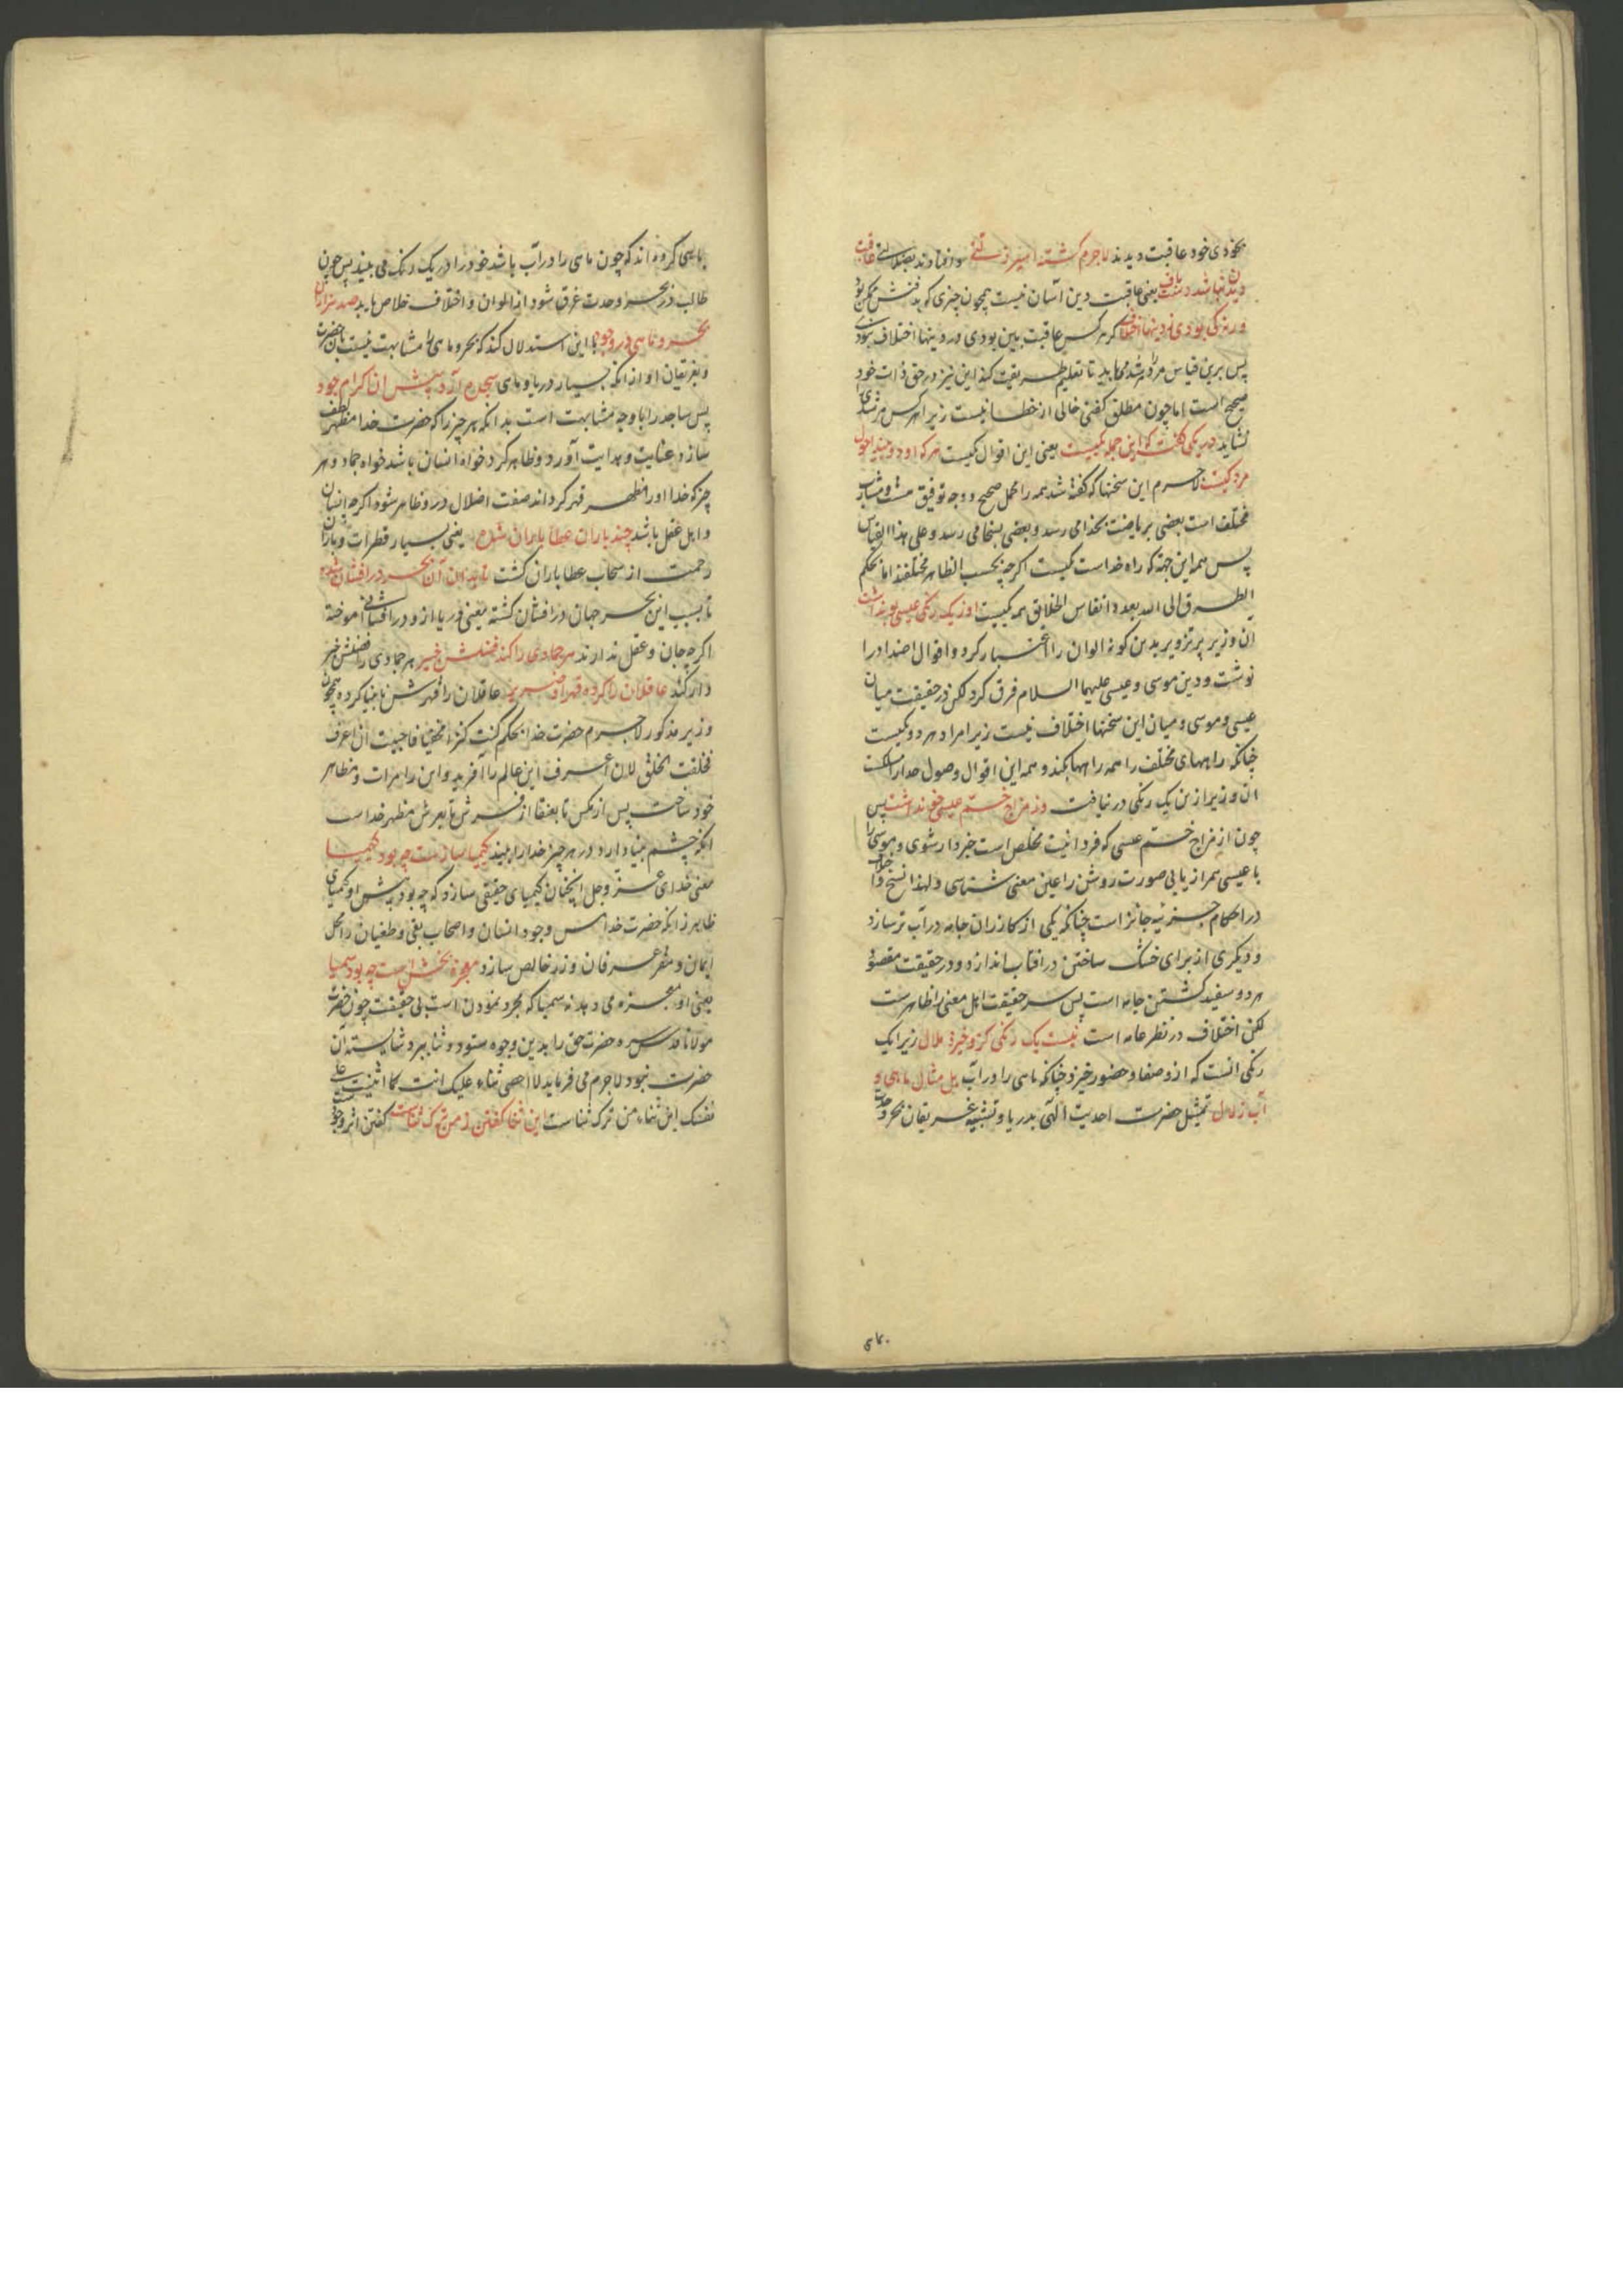 بخودی خود عاقبت دیدند لاجرم کشتند اسیر زلتی و افتادند بضلالتی عاقبت
دیدن نباشد دست باف یعنی عاقبت دین آسان نیست همچون چیزی که بدستش ممکن بود
ورنه کی بودی ز دینها اختلاف اکر هر کس عاقبت بین بودی در دینها اختلاف نبودی
پس برین قیاس مرد مرشد می باید تا تعلیم طریقت کند این نیز در حق ذات خود
صحیح است اما چون مطلق کفتی خالی از خطا نیست زیرا هر کس مرشدی را
نشاید در یکی کفت که این جمله یکیست یعنی این اقوال یکیست هر که او دو بیند احول
مرد کیست لاجرم این سخنها که کفته شد همه را محمل صحیح و وجه توفیق هست و مشارب
مختلف است بعضی بریاضت بخدا می رسد و بعضی بسخا می رسد و علی هذا القیاس
پس همه این جمله که راه خداست یکیست اکر چه بحسب الظاهر مختلفند اما بحکم
الطرق الی الله بعدد انفاس الخلایق همه یکیست او ز یک رنکی عیسی بو نداشت
آن وزیر پر تزویر بدین کونه الوان را اعتبار کرد و اقوال اضداد را
نوشت و دین موسی و عیسی علیهما السلام فرق کرد لکن در حقیقت میان
عیسی و موسی و میان این سخنها اختلاف نیست زیرا مراد هر دو یکیست
چنانکه راههای مختلف را همه راهها کنند و همه این اقوال وصول خدا راست
آن وزیر ازین یک رنکی در نیافت وز مزاج خم عیسی خو نداشت پس
چون از مزاج خم عیسی که فردانیت مخلص است خبردار شوی و موسی را
با عیسی همراز یابی صورت روشن را عین معنی شناسی و لهذا نسخ
در احکام جزئیه جائز است چنانکه یکی از کازران جامه در آب تر سازد
و دیکری از برای خشک ساختن در افتاب اندازد و در حقیقت مقصود
هر دو سفید کشتن جامه است پس سر حقیقت اهل معنی را ظاهرست
لکن اختلاف در نظر عامه است نیست یک رنکی کزو خیزد ملال زیرا یک
رنکی آنست که ازو صفا و حضور خیزد چنانکه ماهی را در آب بل مثال ماهی و
آب زلال تمثیل حضرت احدیت الهی بدریا و تشبیه غریقان بحر وحدت
بماهی کرده اند که چون ماهی را در آب باشد خود را در یک رنک می بیند پس چون
طالب در بحر وحدت غرق شود از الوان و اختلاف خلاص یابد صد هزاران
بحر و ماهی در وجود با این استدلال کند که بحر و ماهی را مشابهت نیست بآن حضرت
و بغریقان او از آنکه بسیار دریا و ماهی سجده آرد پیش آن اکرام جود
پس ساجد را با و چه مشابهت است بدانکه هر چیز را که حضرت خدا مظهر لطف
سازد عنایت و هدایت آورد و ظاهر کردد خواه انسان باشد خواه جماد و هر
چیز که خدا او را مظهر قهر کرداند صفت اضلال درو ظاهر شود اکر چه انسان
و اهل عقل باشد چند باران عطا باران شده یعنی بسیار قطرات و باران
رحمت از سحاب عطا باران کشت تا بدان آن بحر در افشان شده
تا بسبب این بحر جهان در افشان کشته یعنی دریا ازو در افشانی آموخته
اکر چه جان و عقل ندارند هر جمادی را کند فضلش خبیر هر جمادی را فضلش خبر
دار کند عاقلان را کرده قهر او ضریر عاقلان را قهرش نابینا کرده همچون
وزیر مذکور لاجرم حضرت خدا بحکم کنت کنزا مخفیا فاحببت ان اعرف
فخلقت الخلق لان اعرف این عالم را آفرید و این را مرات و مظاهر
خود ساخت پس از مکس تا بعنقا از فرش تا بعرش مظهر خداست
آنکه چشم بینا دارد در هر چیز خدا را بیند کیمیا سازست چه بود کیمیا
معنی خدای عز و جل آنچنان کیمیای حقیقی سازد که چه بود پیش او کیمیای
ظاهر زانکه حضرت خدا مس وجود انسان و اصحاب بغی و طغیان را محل
ایمان و مقر عرفان و زر خالص سازد معجزه بخش است چه بود سیمیا
یعنی او معجزه می دهد نه سیمیا که مجرد نمودن است بی حقیقت چون حضرت
مولانا قدس سره حضرت حق را بدین وجوه ستود و ثنا ببرد شایسته آن
حضرت نبود لاجرم می فرماید لا احصی ثناء علیک انت کما اثنیت علی
نفسک این ثناء من ترک ثناست این ثنا کفتن ز من ترک ثناست کفتن اثر وجود